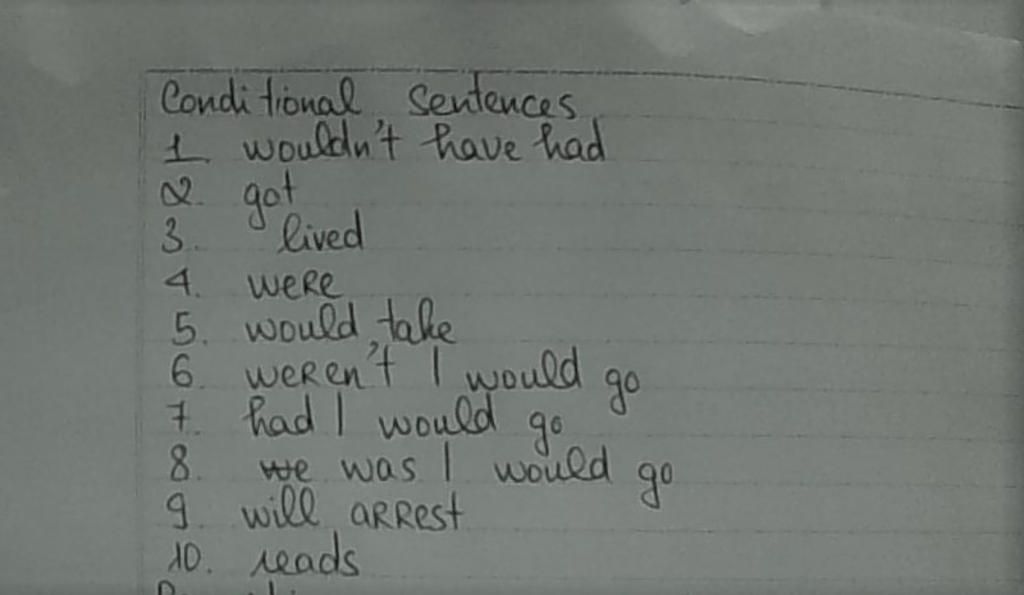 Conditional Sentences
1 wouldn't have had
2. got
3. lived
4. were
5. would take
6. weren't | would go
7. had | would go
8. was | would go
9. will arrest
10. reads